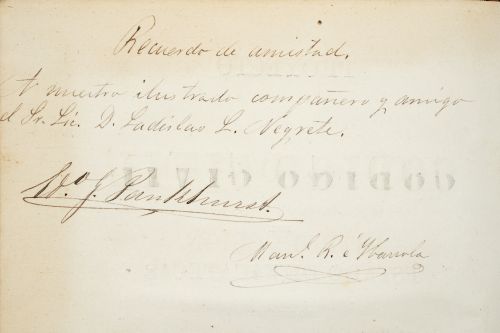 Recuerdo de amistad.
A nuestro ilustrado compañero y amigo
el Sr. Lic. D. Ladislao L. Negrete.
Man.l R. é Ybarrola
CODIGO CIVIL